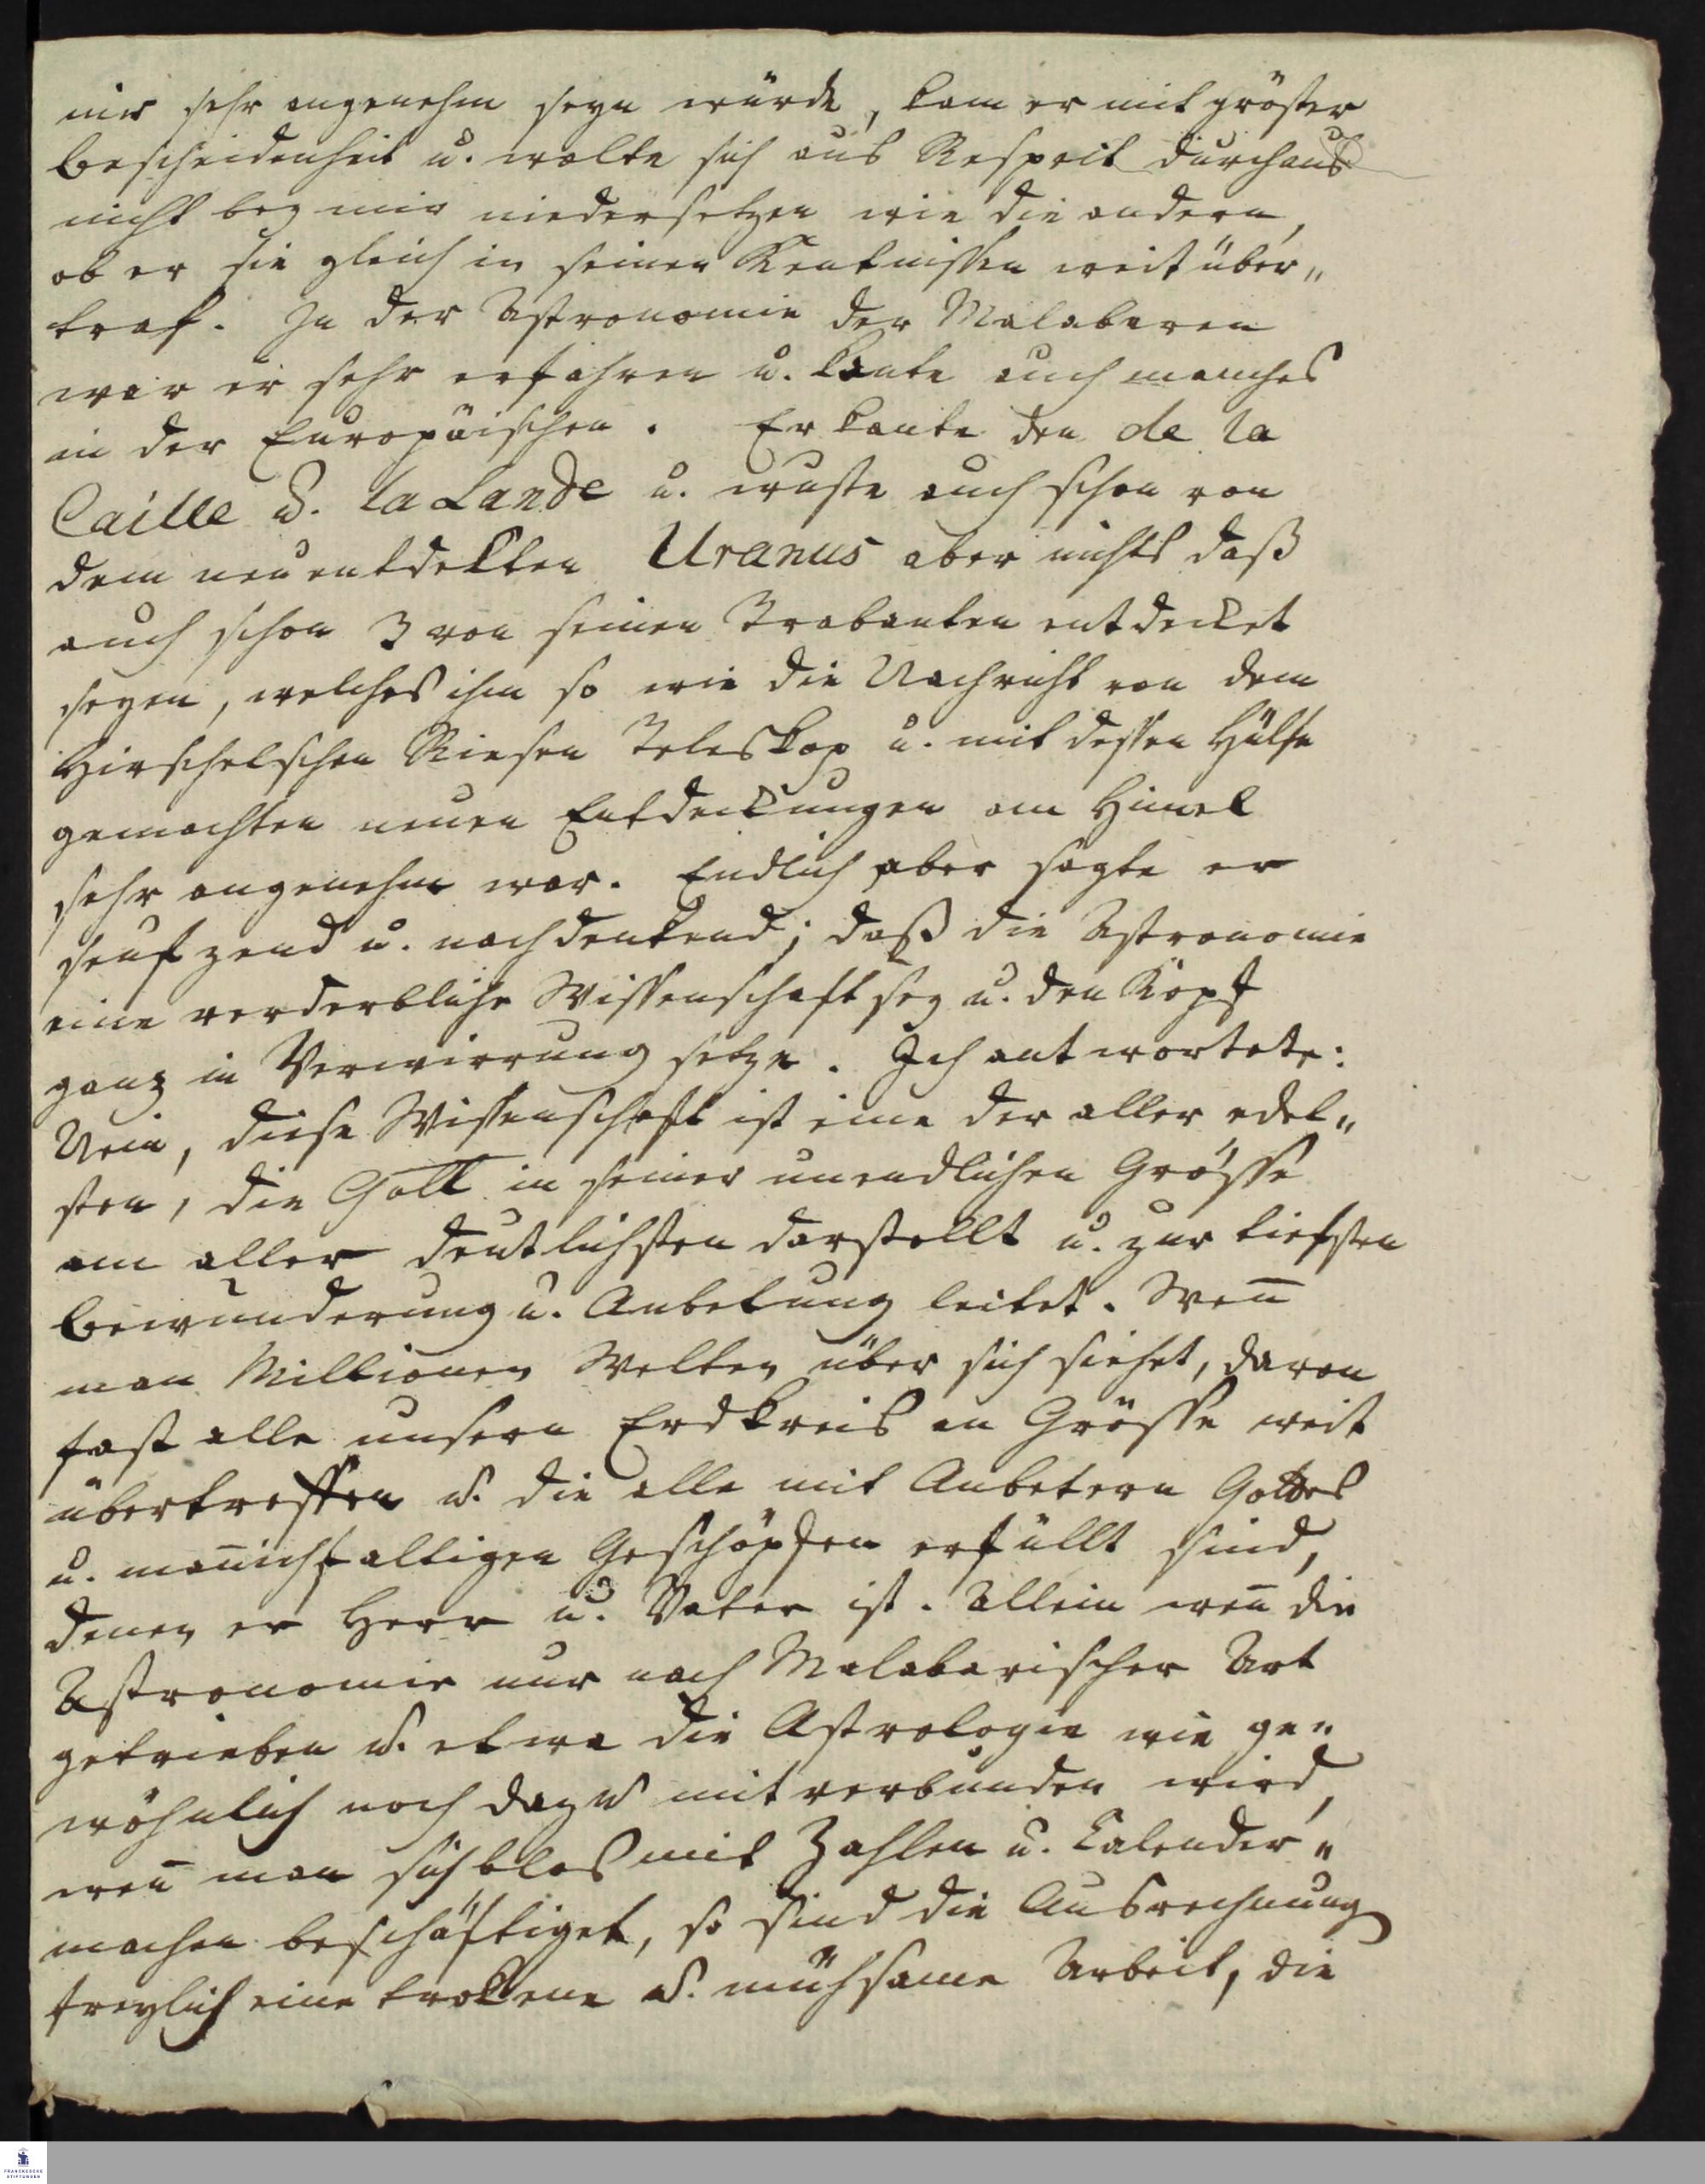 mir sehr angenehm seyn würde, kam er mit gröster
Bescheidenheit u. wolte sich aus Respect durchaus
nicht bey mir niedersetzen wie die andern,
ob er sie gleich in seinen Kentnissen weit über„
traf. In der Astronomie der Malabaren
war er sehr erfahren u. kante auch manches
in der Europäischen. Er kante den de la
Caille u. la Lande u. wuste auch schon von
dem neuentdekten Uranus aber nicht daß
auch schon 3 von seinen Trabanten entdecket
seyen, welches ihm so wie die Nachricht von dem
Hirschelschen Riesen Teleskop u. mit dessen Hülfe
gemachten neuen Entdeckungen am Himel
sehr angenehm war. Endlich aber sagte er
seufzend u. nachdenkend; daß die Astronomie
eine verderbliche Wissenschaft sey u. den Kopf
ganz in Verwirrung setze. Ich antwortete:
Nein, diese Wissenschaft ist eine der aller edel„
sten, die Gott in seiner unendlichen Grösse
am aller deutlichsten darstellt u. zur tiefsten
Bewunderung u. Anbetung leitet. Wen̄
man Millionen Welten über sich siehet, davon
fast alle unsern Erdkreis an Grösse weit
übertreffen u. die alle mit Anbetern Gottes
u. man̄ichfaltigen Geschöpfen erfüllt sind,
denen er Herr u. Vater ist. Allein wen̄ die
Astronomie nur nach Malabarischer Art
getrieben u. etwa die Astrologie wie ge„
wöhnlich noch dazu mit verbunden wird,
wen̄ man sich blos mit Zahlen u. Calender„
machen beschäftiget, so sind die Ausrechnung
freylich eine trokene u. mühsame Arbeit, die
FRANCKESCHE
STIFTUNGEN